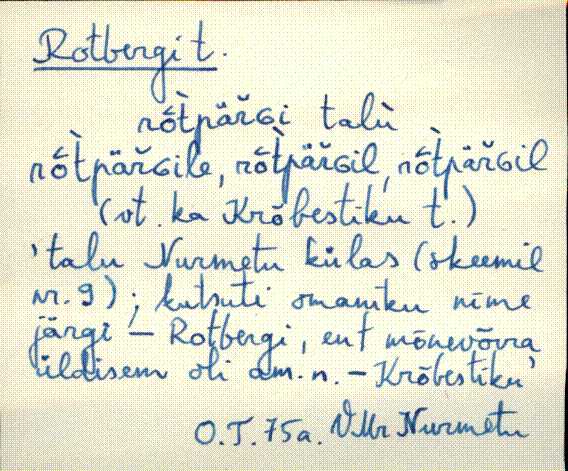 Rotbergi t.
rõ̀tpär̆ɢi talù
rõ̀tpär̆ɢile, rõ̀tpär̆ɢil, rõ̀tpär̆ɢil
(vt. ka Krõbestiku t.)
'talu Nurmetu külas (skeemil
nr. 9); kutsuti omaniku nime
järgi – Rotbergi, ent mõnevõrra
üldisem oli am. n. – Krõbestiku'
O.T. 75a. VMr Nurmetu